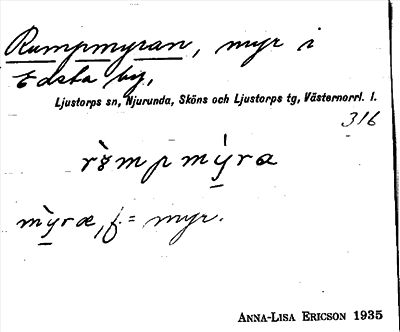 Rumpmyran, myr i
Edsta by,
Ljustorps sn, Njurunda, Sköns och Ljustorps tg, Västernorrl. l.
316
mỳræ, f. = myr.
ANNA-LISA ERICSON 1935